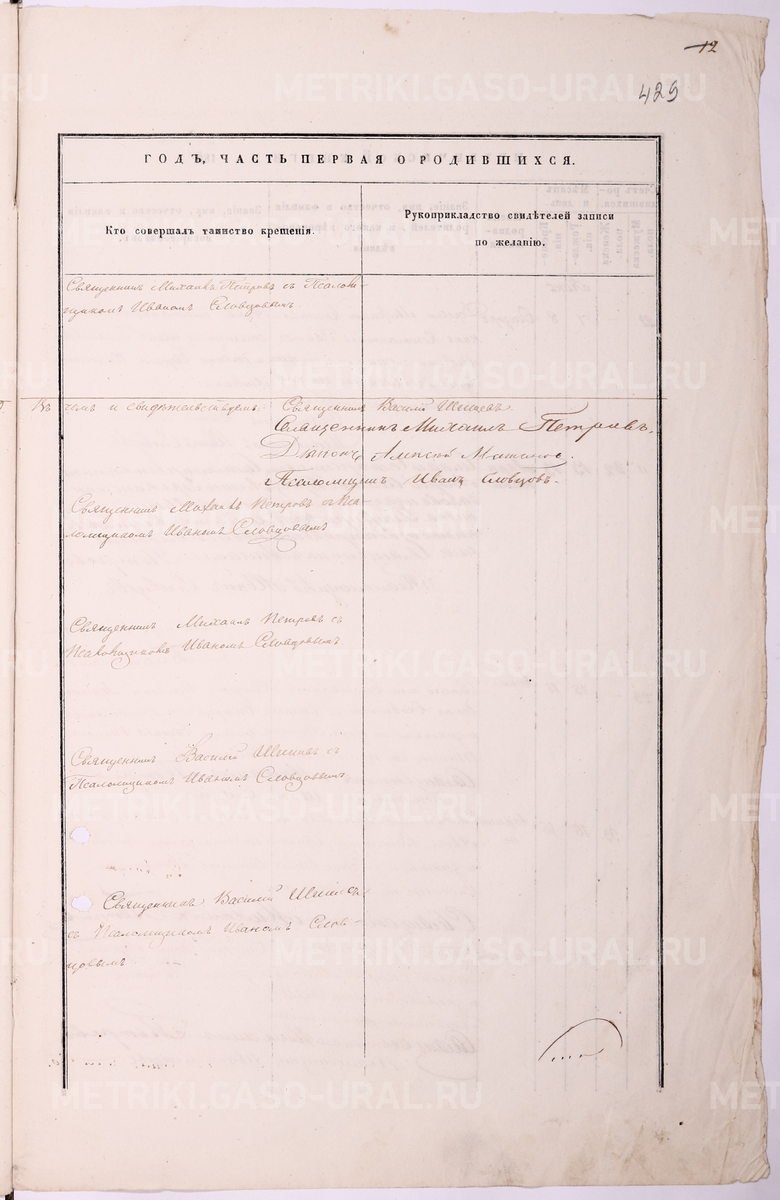 12
429
ГОДЪ, ЧАСТЬ ПЕРВАЯ О РОДИВШИХСЯ.
Кто совершалъ таинство крещенія.
Рукоприкладство свидѣтелей записи
по желанію.
Священникъ Михаилъ Петровъ съ Псалом-
щикомъ Иваномъ Словцовымъ
Въ семъ и свидѣтельствуемъ Священникъ Василій
Священникъ Михаилъ Петровъ.
Діаконъ
Псаломщикъ Иванъ Словцовъ.
Священникъ Михаилъ Петровъ съ Пса-
ломщикомъ Иваномъ Словцовымъ
Священникъ Михаилъ Петровъ съ
Псаломщикомъ Иваномъ Словцовымъ
Священникъ Василій съ
Псаломщикомъ Иваномъ Словцовымъ
Священникъ Василій
съ Псаломщикомъ Иваномъ Слов-
цовымъ
METRIKI.GASO-URAL.RU